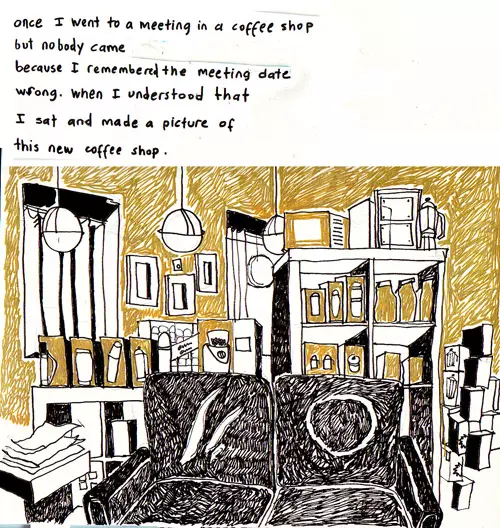 once I went to a meeting in a coffee shop
but nobody came
because I remembered the meeting date
wrong. when I understood that
I sat and made a picture of
this new coffee shop.